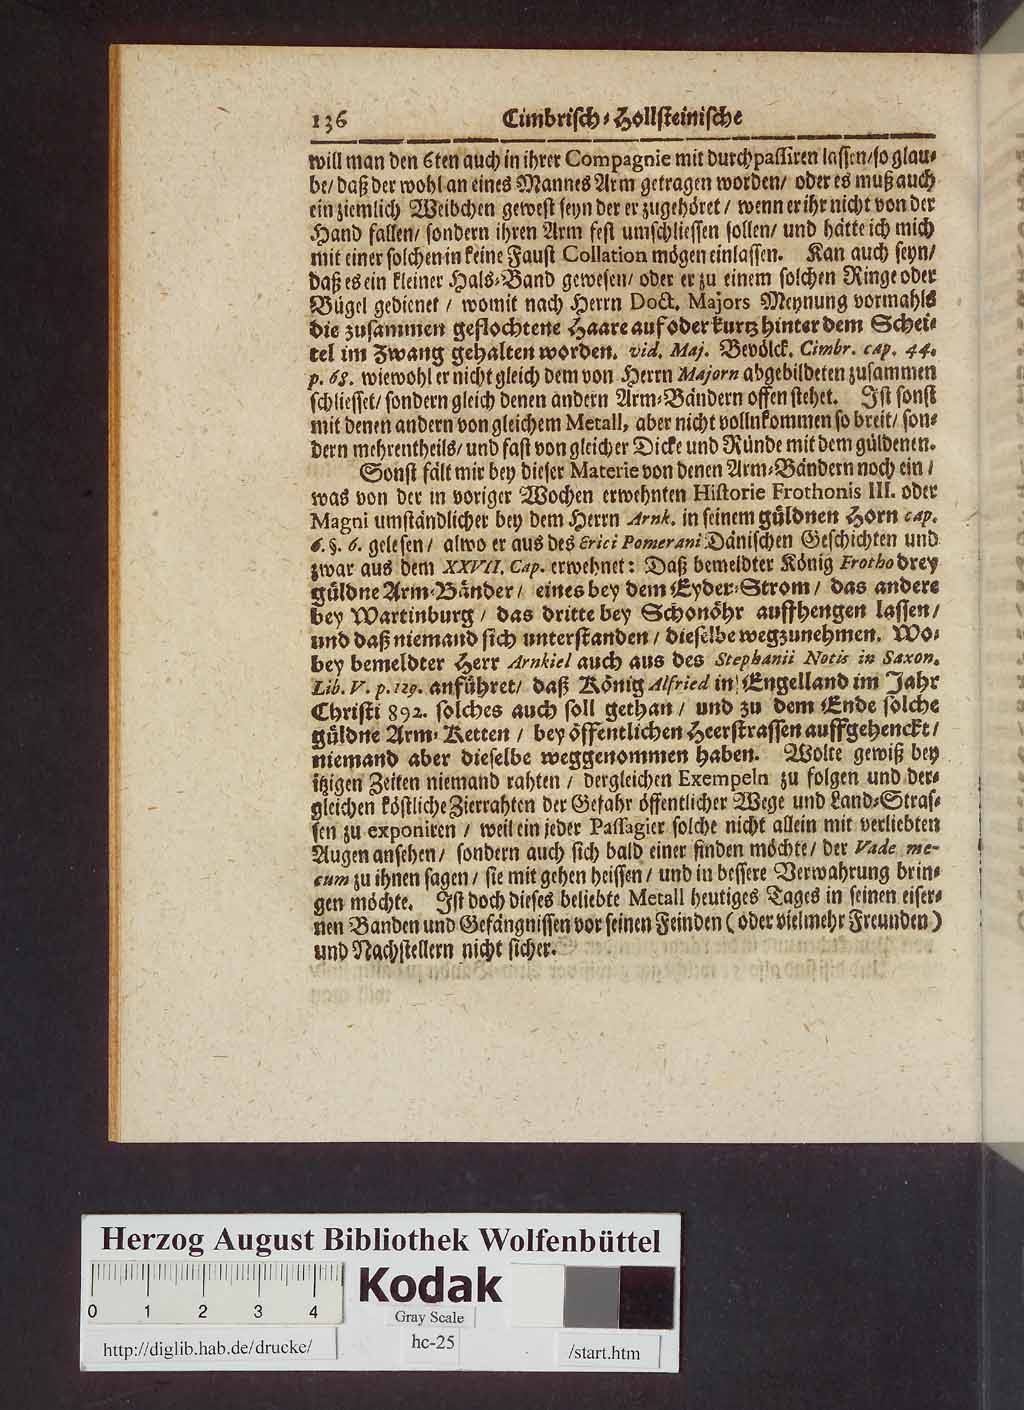 136 Cimbrisch-Hollsteinische
will man den 6ten auch in ihrer Compagnie mit durchpassiren lassen/ so glau-
be/ daß der wohl an eines Mannes Arm getragen worden/ oder es muß auch
ein ziemlich Weibchen gewest seyn der er zugehöret/ wenn er ihr nicht von der
Hand fallen/ sondern ihren Arm fest umschliessen sollen/ und hätte ich mich
mit einer solchen in keine Faust Collation mögen einlassen. Kan auch seyn/
daß es ein kleiner Hals-Band gewesen/ oder er zu einem solchen Ringe oder
Bügel gedienet/ womit nach Herrn Doct. Majors Meynung vormahls
die zusammen geflochtene Haare auf oder kurtz hinter dem Schei-
tel im Zwang gehalten worden. vid. Maj. Bevölck. Cimbr. cap. 44.
p. 68. wiewohl er nicht gleich dem von Herrn Majorn abgebildeten zusammen
schliesset/ sondern gleich denen andern Arm-Bändern offen stehet. Ist sonst
mit denen andern von gleichem Metall, aber nicht vollnkommen so breit/ son-
dern mehrentheils/ und fast von gleicher Dicke und Ründe mit dem güldenen.
Sonst fält mir bey dieser Materie von denen Arm-Bändern noch ein/
was von der in voriger Wochen erwehnten Historie Frothonis III. oder
Magni umständlicher bey dem Herrn Arnk. in seinem güldnen Horn cap.
6. §. 6. gelesen/ alwo er aus des Erici Pomerani Dänischen Geschichten und
zwar aus dem XXVII. Cap. erwehnet: Daß bemeldter König Frotho drey
güldne Arm-Bänder/ eines bey dem Eyder-Strom/ das andere
bey Wartinburg/ das dritte bey Schonöhr auffhengen lassen/
und daß niemand sich unterstanden/ dieselbe wegzunehmen. Wo-
bey bemeldter Herr Arnkiel auch aus des Stephanii Notis in Saxon.
Lib. V. p. 129. anführet/ daß König Alfried in Engelland im Jahr
Christi 892. solches auch soll gethan/ und zu dem Ende solche
güldne Arm-Ketten/ bey öffentlichen Heerstrassen auffgehenckt/
niemand aber dieselbe weggenommen haben. Wolte gewiß bey
itzigen Zeiten niemand rahten/ dergleichen Exempeln zu folgen und der-
gleichen köstliche Zierrahten der Gefahr öffentlicher Wege und Land-Stras-
sen zu exponiren/ weil ein jeder Passagier solche nicht allein mit verliebten
Augen ansehen/ sondern auch sich bald einer finden möchte/ der Vade me-
cum zu ihnen sagen/ sie mit gehen heissen/ und in bessere Verwahrung brin-
gen möchte. Ist doch dieses beliebte Metall heutiges Tages in seinen eiser-
nen Banden und Gefängnissen vor seinen Feinden (oder vielmehr Freunden)
und Nachstellern nicht sicher.
Herzog August Bibliothek Wolfenbüttel
0 1 2 3 4
Kodak
Gray Scale
hc-25
http://diglib.hab.de/drucke/
/start.htm